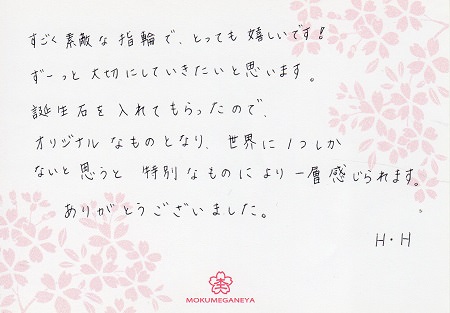 すごく素敵な指輪で、とっても嬉しいです!
ずーっと大切にしていきたいと思います。
誕生石を入れてもらったので、
オリジナルなものとなり、世界に1つしか
ないと思うと 特別なものにより一層感じられます。
ありがとうございました。
H・H
MOKUMEGANEYA